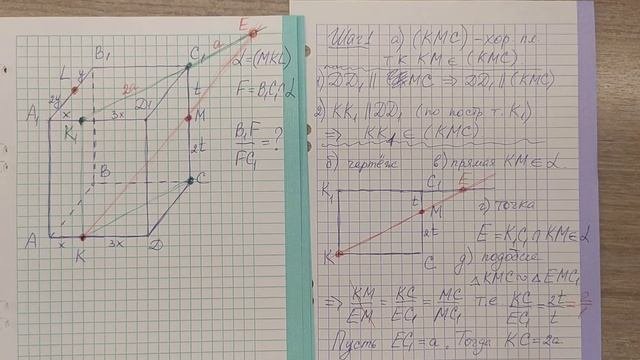 E
a
B₁
C₁
α=(MKL)
L
y
2y
2a
t
F=B₁C₁∩α
A₁
x
K₁
3x
D₁
M
B₁F
FC₁
= ?
2t
B
C
A
x
K
3x
D
Шаг 1 а) (KMC) – хор. пл.
т.к KM ∈ (KMC).
1) DD₁ || MC ⇒ DD₁ || (KMC)
2) KK₁ || DD₁ (по постр т. K₁)
⇒ KK₁ ∈ (KMC)
б) чертёж в) прямая KM ∈ α.
K₁ C₁ E
t
M
г) точка
2t
E = K₁C₁ ∩ KM ∈ α
K
C
д) подобие
△KMC ∾ △EMC₁
⇒ KM/EM = KC/EC₁ = MC/MC₁ т.е KC/EC₁ = 2t/t = 2/1
Пусть EC₁ = a. Тогда KC = 2a